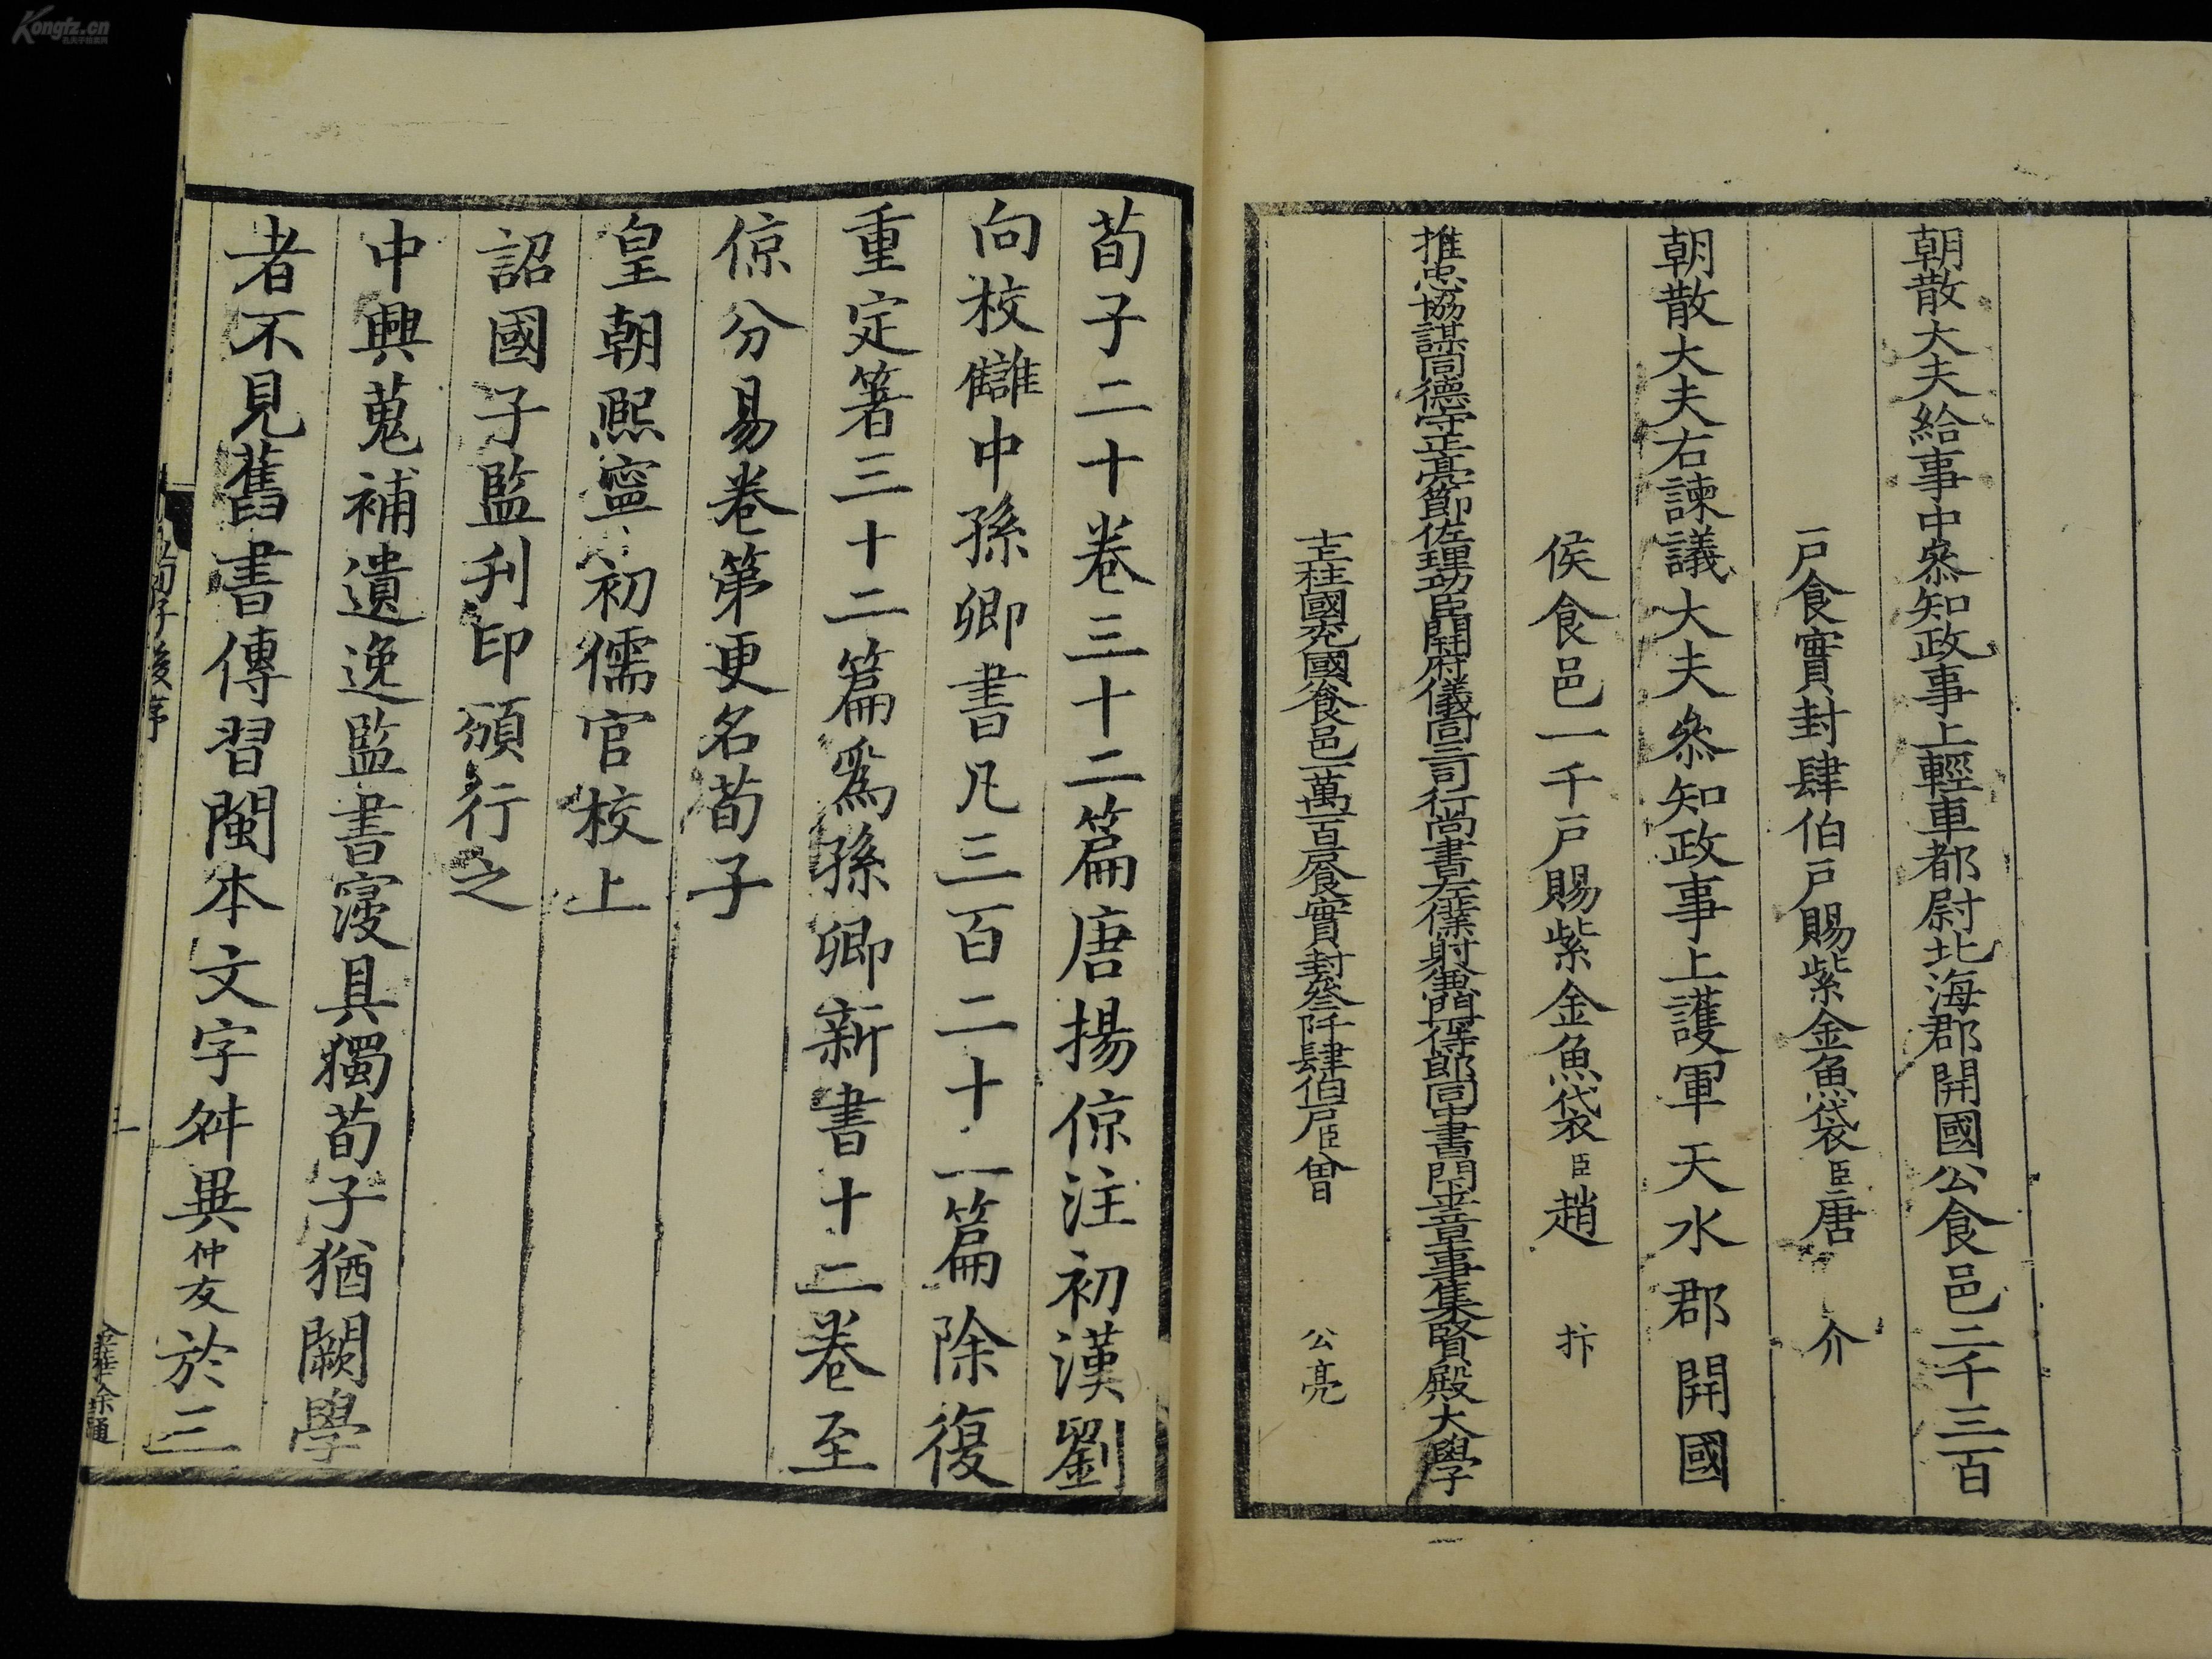 朝散大夫給事中叅知政事上輕車都尉北海郡開國公食邑二千三百
戶食實封肆伯戶賜紫金魚袋臣唐 介
朝散大夫右諫議大夫叅知政事上護軍天水郡開國
侯食邑一千戶賜紫金魚袋臣趙 抃
推忠協謀同德守正亮節佐理功臣開府儀同三司行尚書左僕射兼門下侍郎同中書門下平章事集賢殿大學
士上柱國兗國公食邑一萬一百戶食實封叄阡肆伯戶臣曾 公亮
荀子二十卷三十二篇唐揚倞注初漢劉
向校讎中孫卿書凡三百二十一篇除復
重定著三十二篇爲孫卿新書十二卷至
倞分易卷第更名荀子
皇朝熙寧初儒官校上
詔國子監刋印頒行之
中興蒐補遺逸監書寖具獨荀子猶闕學
者不見舊書傳習閩本文字舛異仲友於三
荀子後序
金華余通
Kongfz.cn